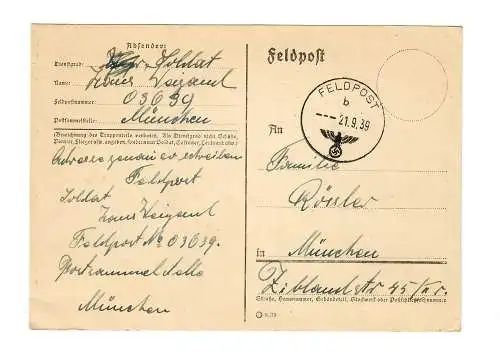 Absender:
Dienstgrad: Soldat
Name: Hans Weigand
Feldpostnummer: 03639
Postsammelstelle: München
(Bezeichnung des Truppenteils verboten. Als Dienstgrad nicht Schütze,
Pionier, Flieger usw. angeben, sondern nur Soldat, Gefreiter, Leutnant usw.)
Adresse genau so schreiben
Feldpost
Soldat
Hans Weigand
Feldpost No 03639.
Postsammelstelle
München
Feldpost
FELDPOST
b
--- 21.9.39
An
Familie
Rösler
in München
45/
Straße, Hausnummer, Gebäudeteil, Stockwerk oder Postschließfachnummer